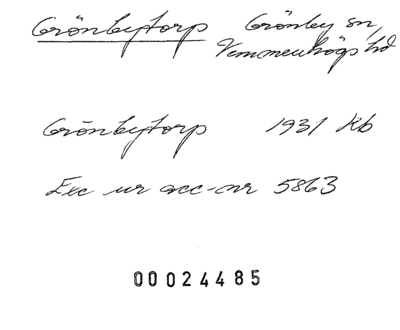 Grönbytorp Grönby sn,
Vemmenhögs hd
Grönbytorp 1931 Kb
Exc ur acc-nr 5863
00024485